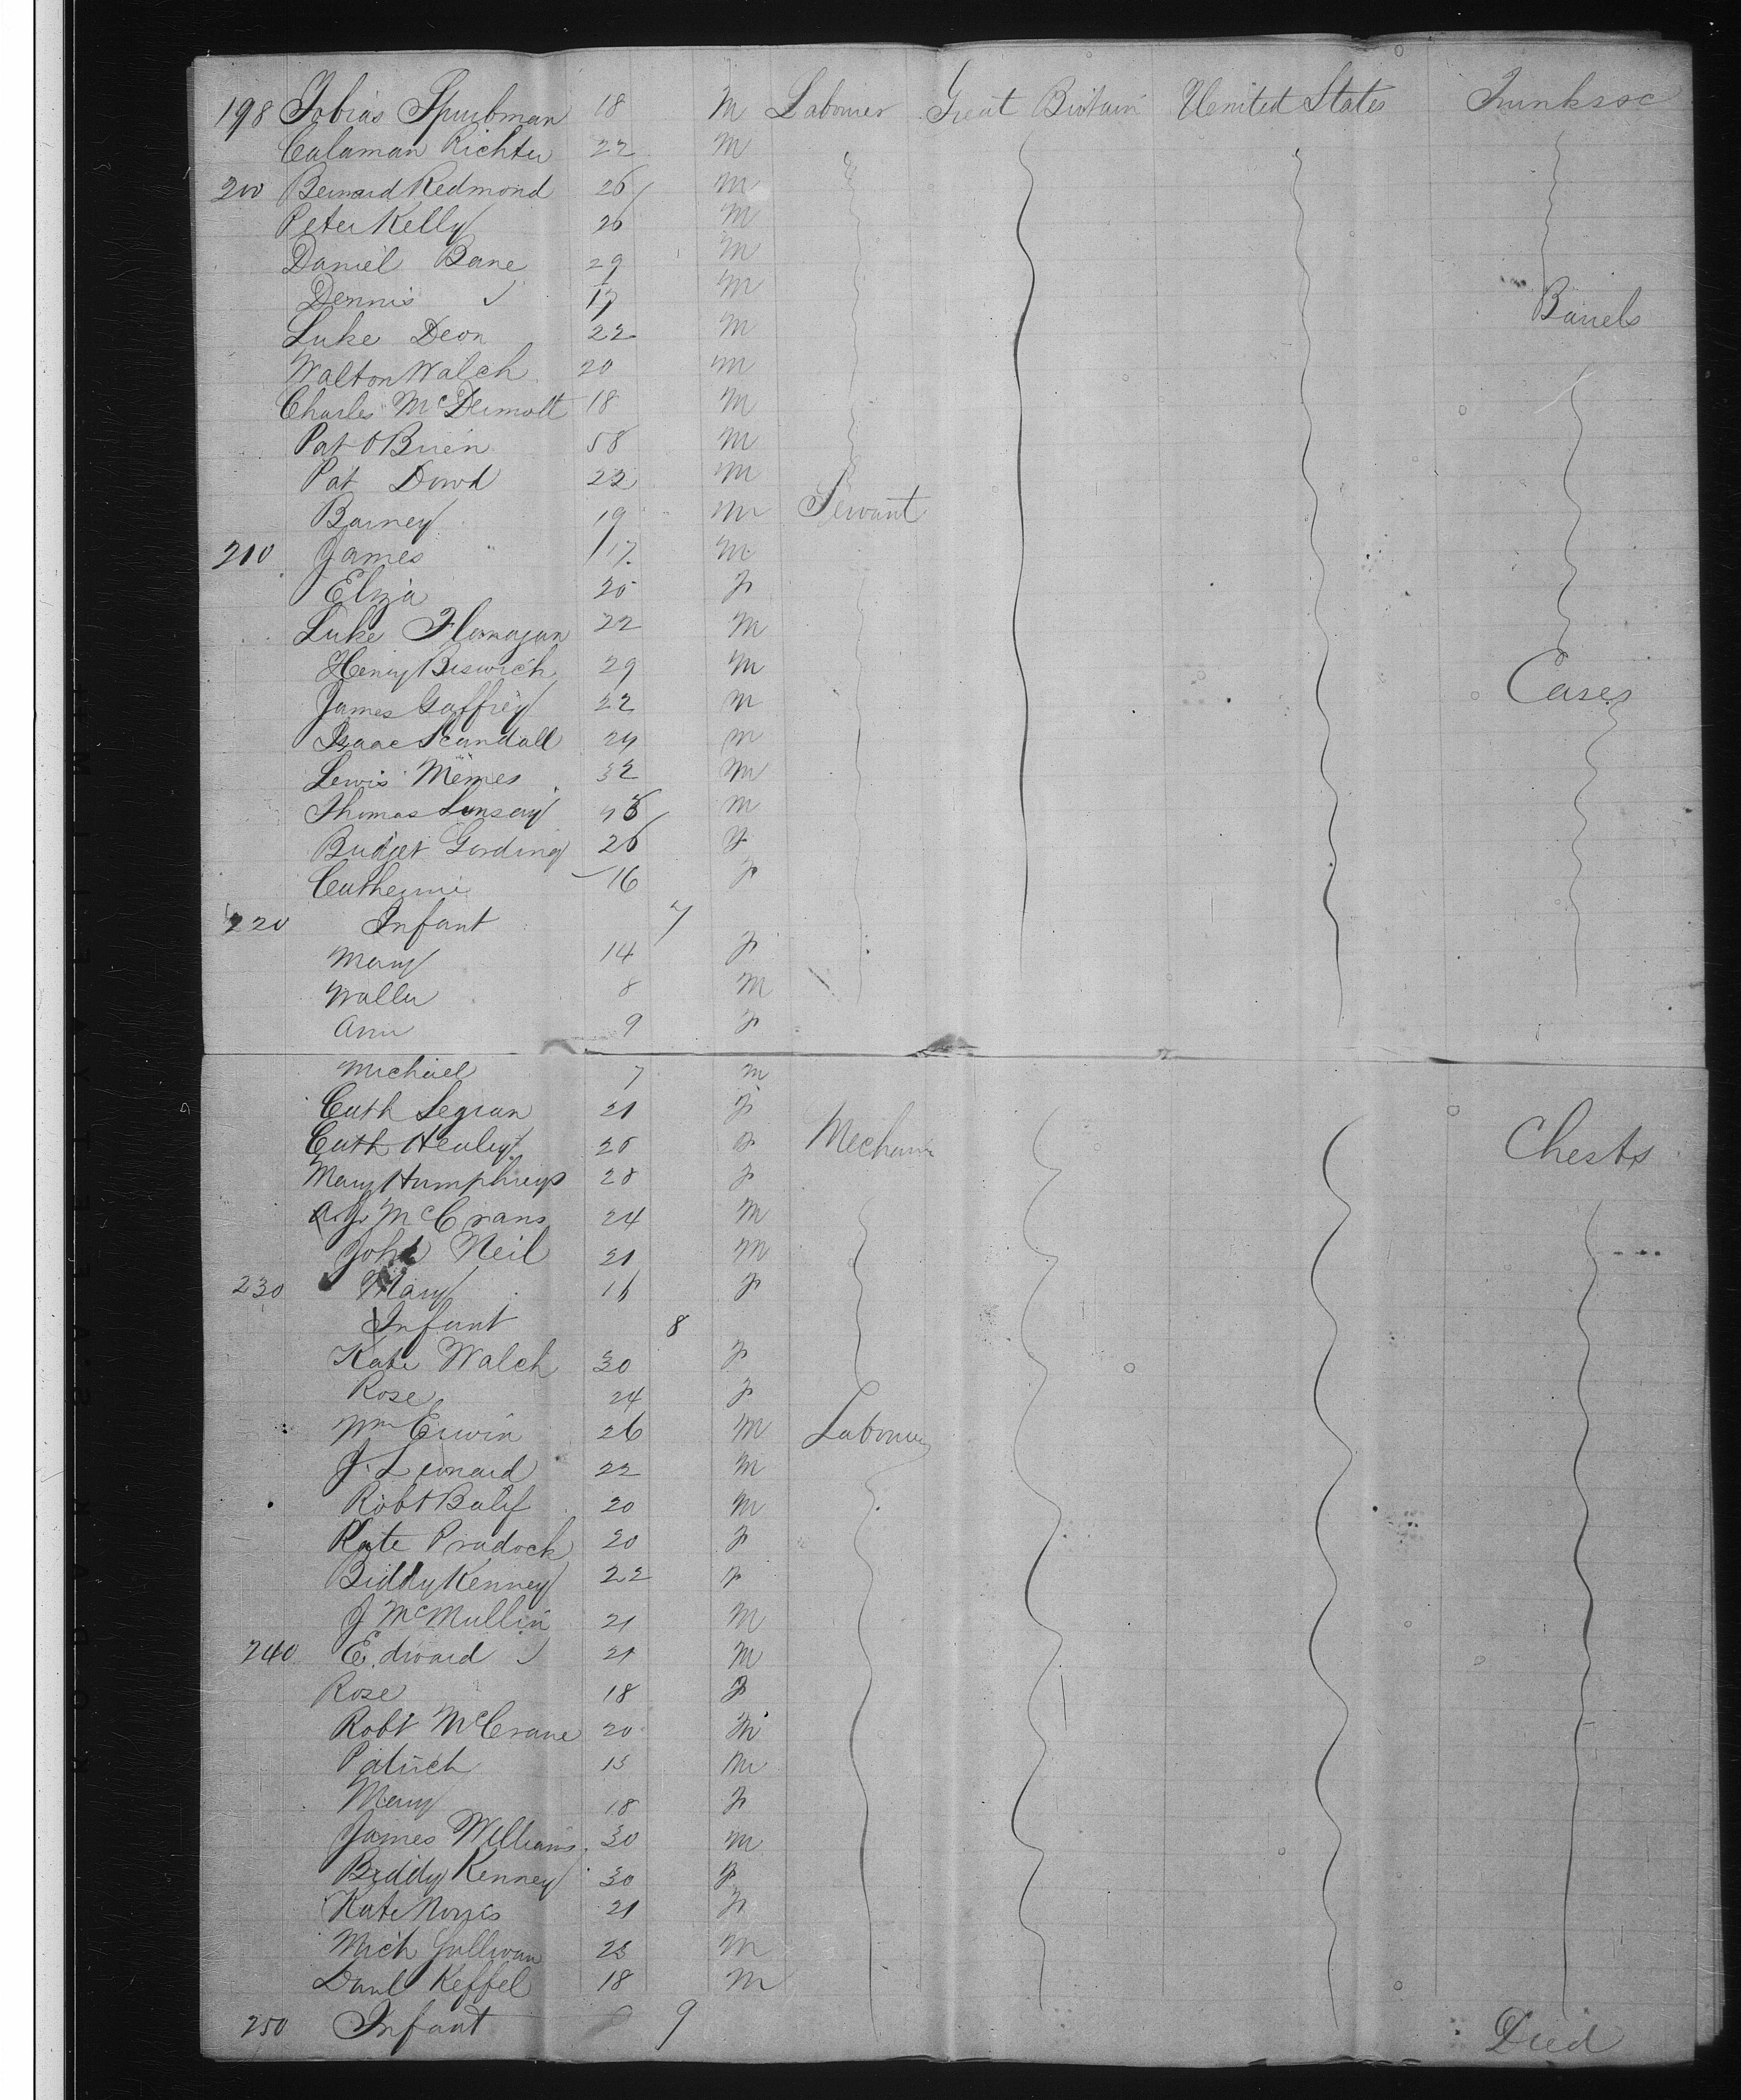 198 Tobias Spuibman 18 M Labourer Great Britain United States Trunks &c
Calaman Richter 22 M
200 Bernard Redmond 26 M
Peter Kelly 26 M
Daniel Bane 29 M
Dennis 17 M
Luke Deon 22 M Barrels
Walton Walch 20 M
Charles McDermott 18 M
Pat OBrien 58 M
Pat Dowd 22 M
Barney 19 M Servant
210 James " 17 M
Eliza 20 F
Luke Flanagan 22 M
Henry Beswich 29 M
James Gaffrey 22 M Cases
Isaac Scandall 24 M
Lewis Memes 32 M
Thomas Linsay M
Bridget Gording 26 F
Catherine 16 F
220 Infant 7
Mary 14 F
Walter 8 M
Ann 9 F
Michael 7 M
Cath Legran 21 F
Cath Healey 20 F Mechanic Chests
Mary Humphreys 28 F
McCrans 24 M
John Neil 21 M
230 Mary 16 F
Infant 8
Kate Walch 30 F
Rose 24 F
Wm Erwin 26 M Labourer
J. Leonard 22 M
Robt Balif 20 M
Kate Pradock 20 F
Biddy Kenney 22 F
J McMullin 21 M
240 Edward 21 M
Rose 18 F
Robt McCrane 20 M
Patrick 13 M
Mary 18 F
James Williams 30 M
Biddy Kenney 30 F
Kate Norris 21 F
Mich Sullivan 23 M
Danl Keffel 18 M
250 Infant 9 Died